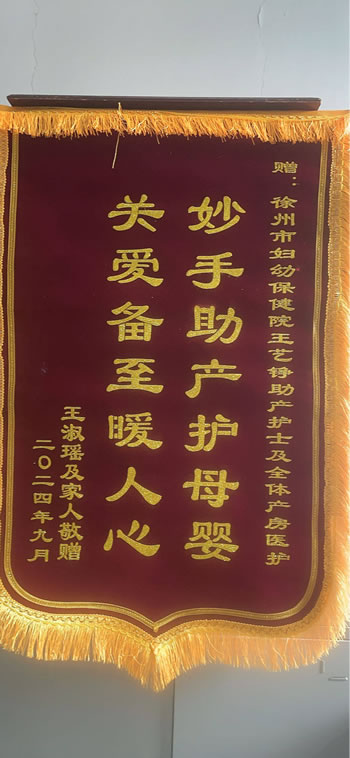 赠：徐州市妇幼保健院王艺铮助产护士及全体产房医护
妙手助产护母婴
关爱备至暖人心
王淑瑶及家人敬赠
二〇二四年九月